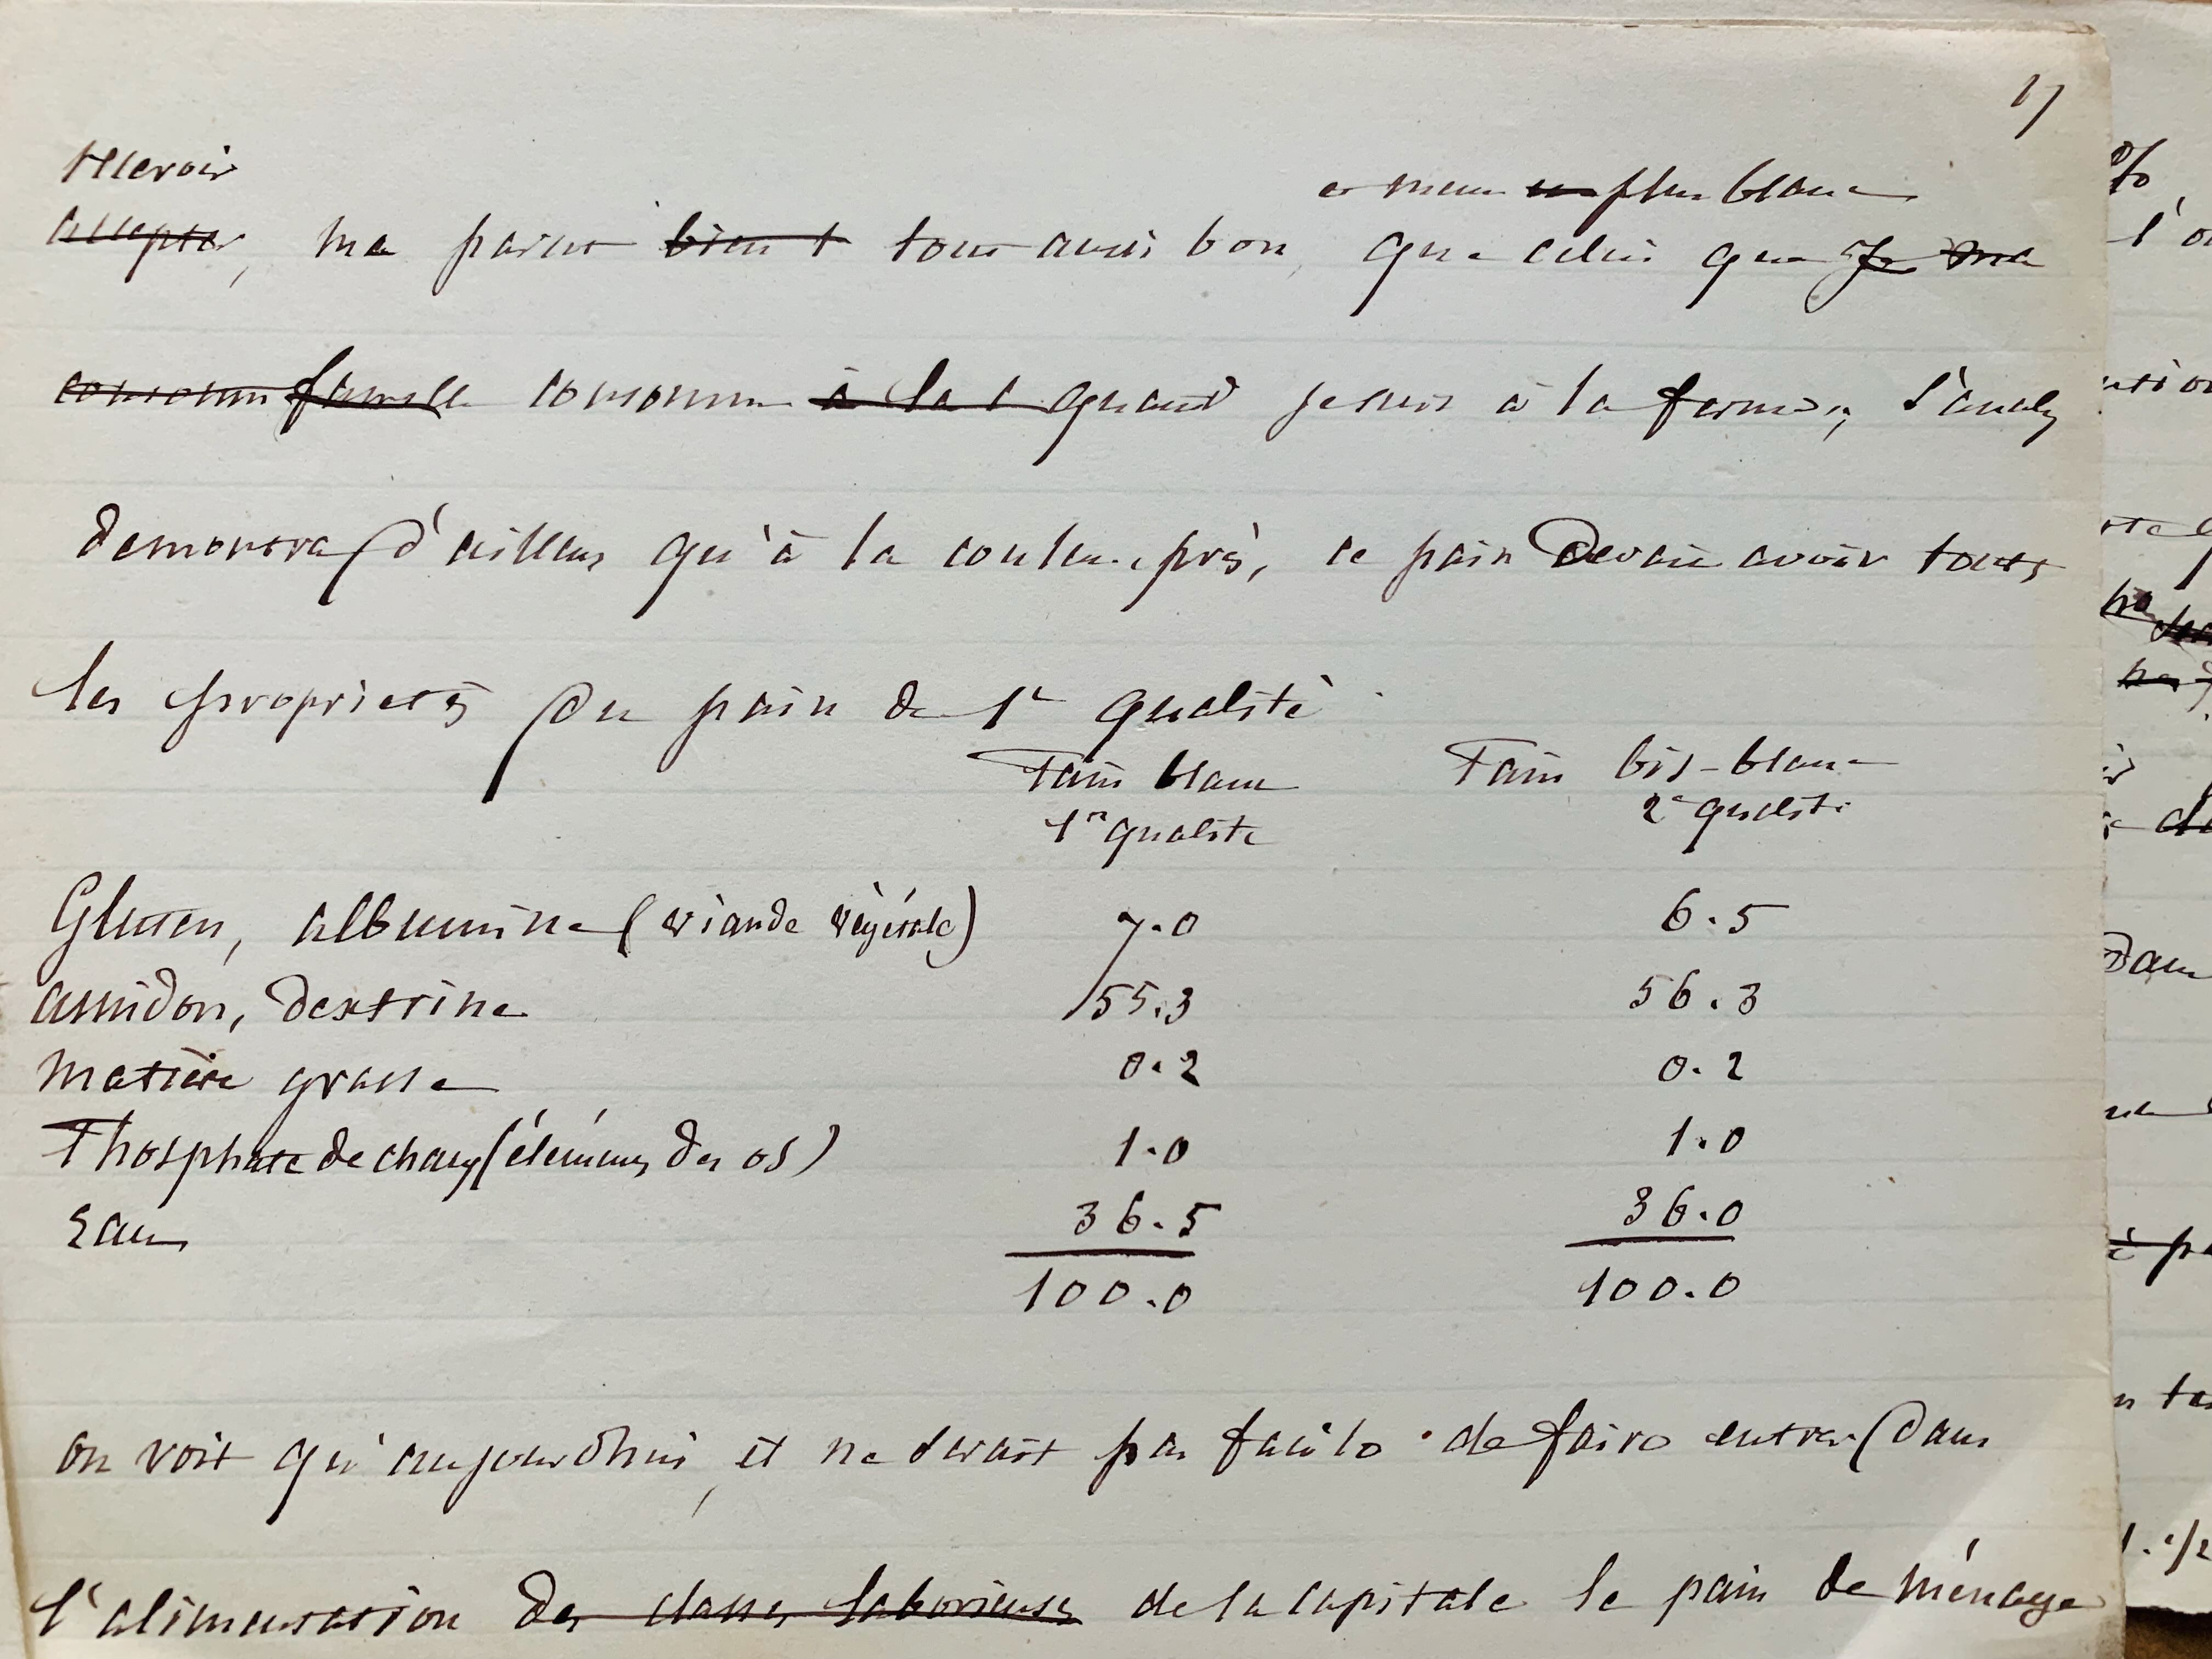 17
recevoir
et même un plus blanc
accepter, me parut bien t tout aussi bon, que celui que je me
consomm famille consomme à la t quand je suis à la ferme, l'analy
demontra d'ailleurs qu'à la couleur près, ce pain devait avoir toutes
les propriétés du pain de 1re qualité.
Pain blanc Pain bis-blanc
1re qualité 2e qualité
Gluten, albumine (viande végétale) 7.0 6.5
amidon, dextrine 55.3 56.3
matière grasse 0.2 0.2
Phosphate de chaux (élémens des os) 1.0 1.0
Eau 36.5 36.0
100.0 100.0
on voit qu'aujourdhui, il ne serait pas facile de faire entrer dans
l'alimentation des classes laborieuses de la capitale le pain de ménage